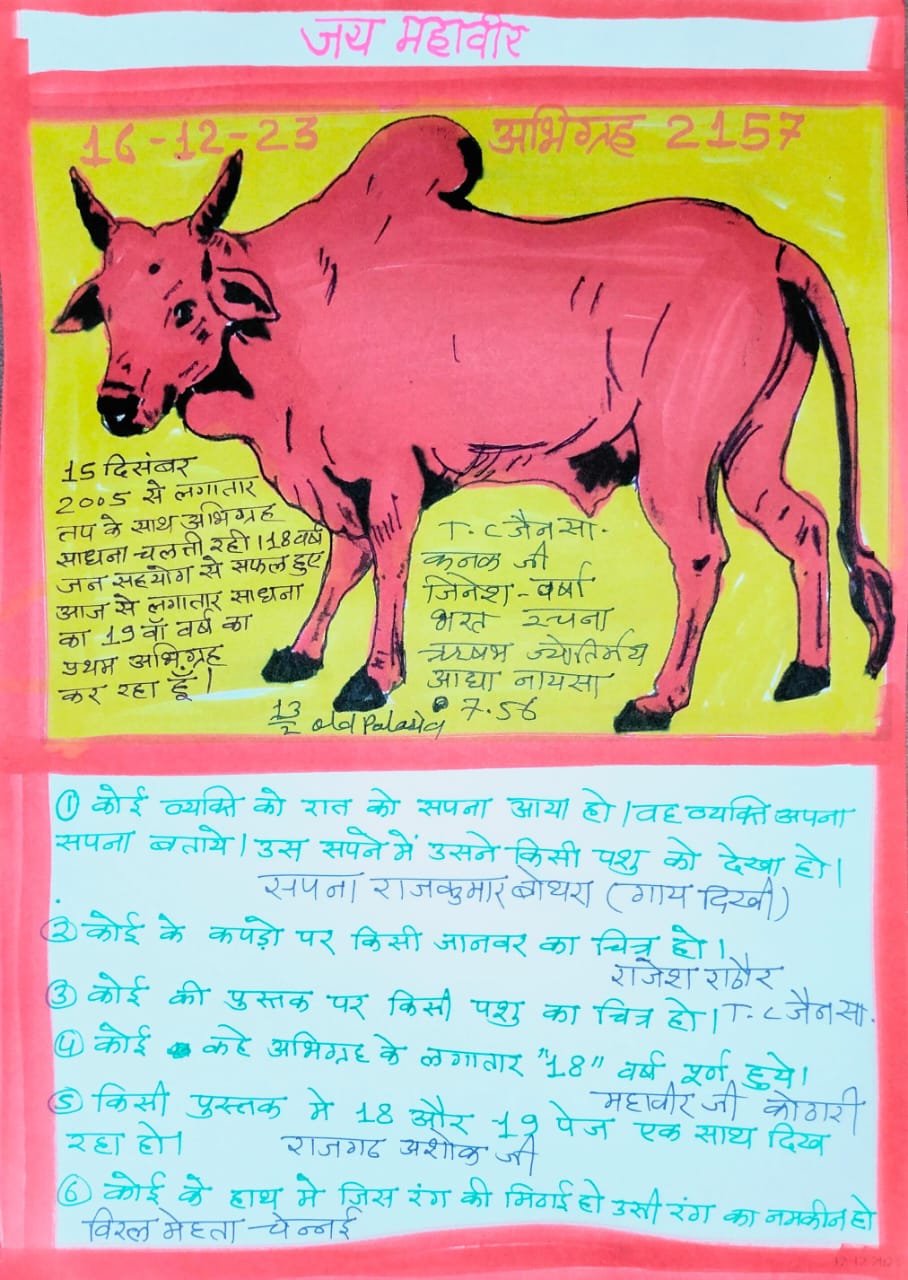 जय महावीर
16-12-23
अभिग्रह 2157
15 दिसंबर
2005 से लगातार
तप के साथ अभिग्रह
साधना चलती रही। 18 वर्ष
जन सहयोग से सफल हुए
आज से लगातार साधना
का 19 वाँ वर्ष का
प्रथम अभिग्रह
कर रहा हूँ।
T. C जैन सा.
कनक जी
जिनेश - वर्षा
भरत रचना
ऋषभ ज्योतिर्मय
आद्या नायसा
7.56
13/2 old Palasia
① कोई व्यक्ति को रात को सपना आया हो। वह व्यक्ति अपना
सपना बताये। उस सपने में उसने किसी पशु को देखा हो।
सपना राजकुमार बोथरा (गाय दिखी)
② कोई के कपड़ो पर किसी जानवर का चित्र हो।
राजेश राठौर
③ कोई की पुस्तक पर किसी पशु का चित्र हो। T. C जैन सा.
④ कोई कहे अभिग्रह के लगातार "18" वर्ष पूर्ण हुये।
महावीर जी कोठारी
⑤ किसी पुस्तक मे 18 और 19 पेज एक साथ दिख
रहा हो। राजगढ अशोक जी
⑥ कोई के हाथ मे जिस रंग की मिठाई हो उसी रंग का नमकीन हो
विरल मेहता चेन्नई